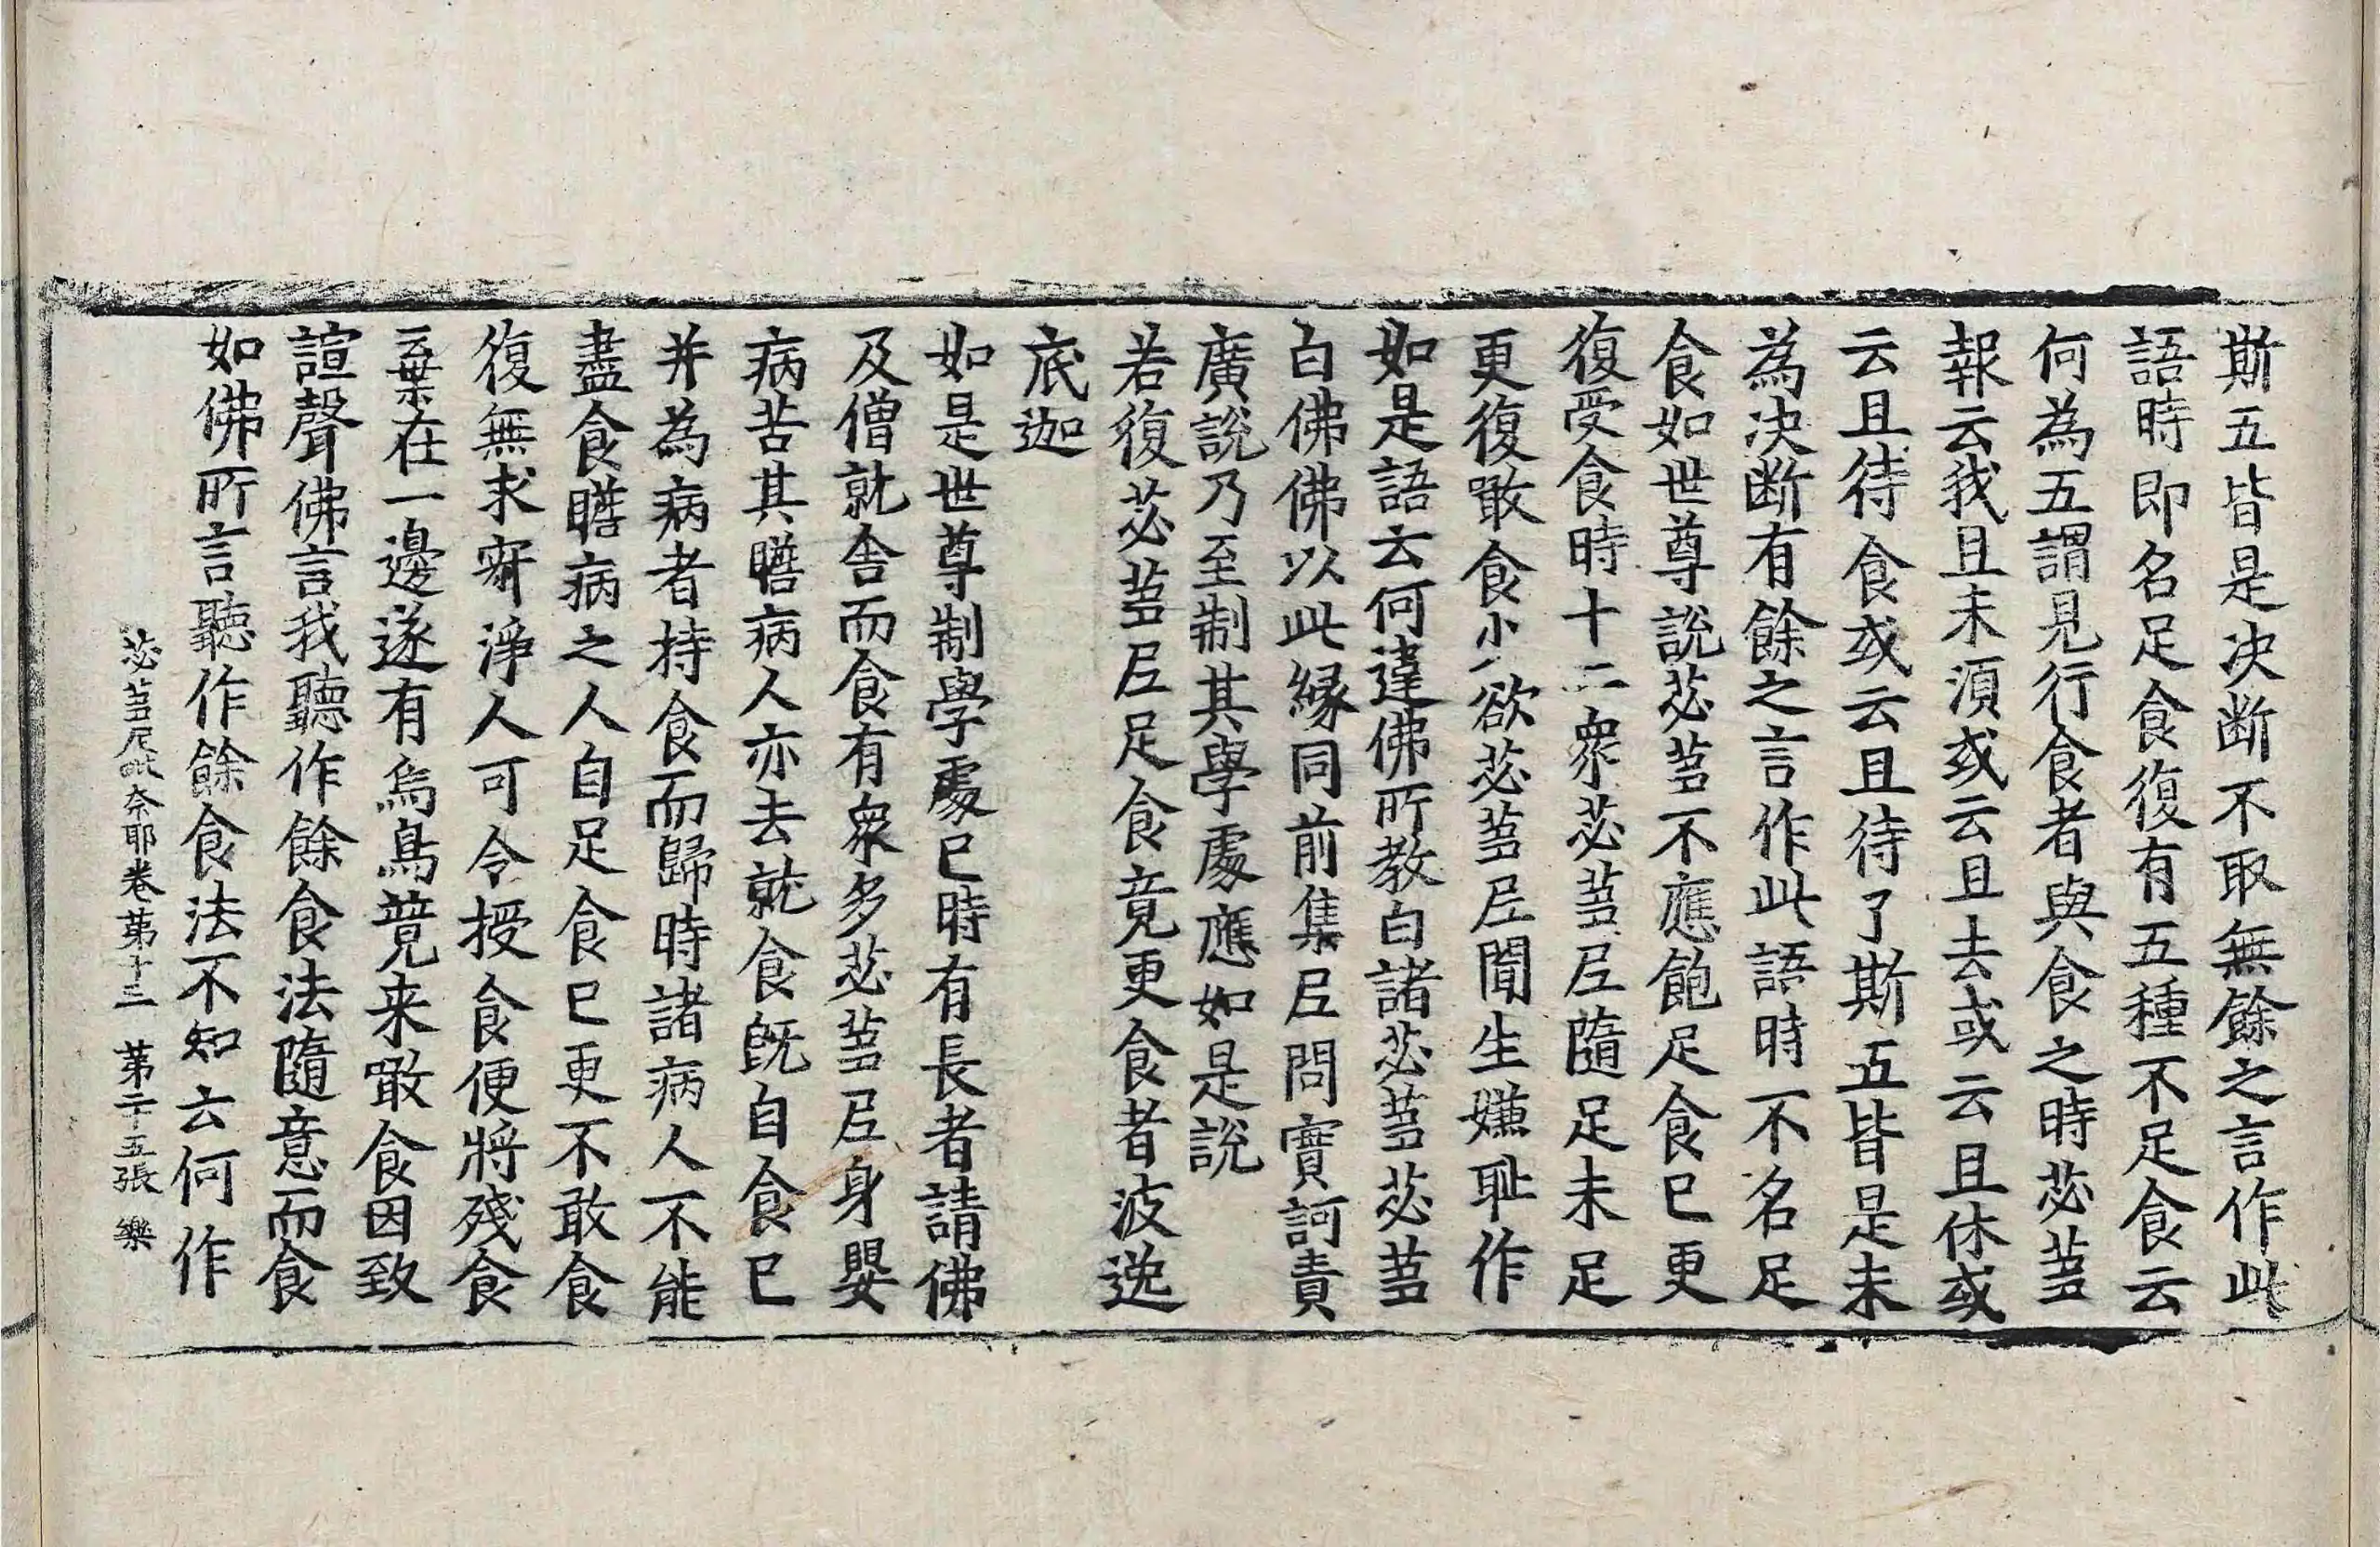 斯五皆是决断不取無餘之言作此
語時即名足食復有五種不足食云
何為五謂見行食者與食之時苾芻
報云我且未湏或云且去或云且休或
云且待食或云且待了斯五皆是未
為决断有餘之言作此語時不名足
食如世尊說苾芻不應飽足食已更
復受食時十二衆苾芻尼隨足未足
更復噉食少欲苾芻尼聞生嫌耻作
如是語云何違佛所教白諸苾芻苾芻
白佛佛以此緣同前集尼問實訶責
廣說乃至制其學處應如是說
若復苾芻尼足食竟更食者波逸
底迦
如是世尊制學處已時有長者請佛
及僧就舍而食有衆多苾芻尼身嬰
病苦其瞻病人亦去就食既自食已
并為病者持食而歸時諸病人不能
盡食瞻病之人自足食已更不敢食
復無求寂淨人可令授食便將殘食
棄在一邊遂有烏鳥競来噉食因致
諠聲佛言我聽作餘食法隨意而食
如佛所言聽作餘食法不知云何作
苾芻尼毗奈耶卷第十三 第二十五張 樂